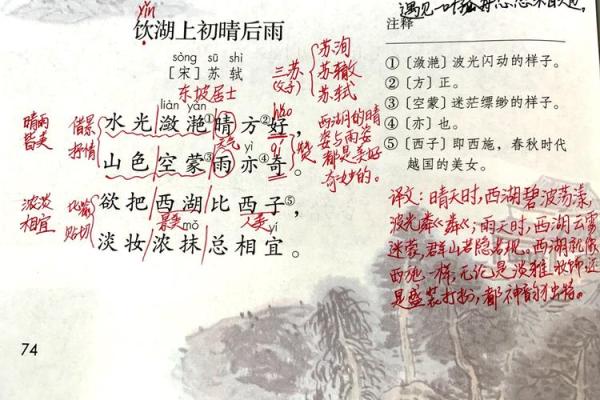 yǐn
饮湖上初晴后雨
sòng sū shì
[宋] 苏轼
东坡居士
三苏
(父子)
苏洵
苏辙
苏轼
liàn yàn
hǎo
水光潋滟晴方②好，
天气 yì
qí
山色空蒙③雨亦④奇。
赞
欲把西湖比西子⑤，
景美 人美
mǒ yí
淡妆浓抹总相宜。
晴雨
皆美
借景
抒情
淡浓
相宜
比喻
贴切
西湖的晴
姿与雨姿
都是美好
奇妙的。
注释
①〔潋滟〕波光闪动的样子。
②〔方〕正。
③〔空蒙〕迷茫缥缈的样子。
④〔亦〕也。
⑤〔西子〕即西施，春秋时代
越国的美女。
译文：晴天时，西湖碧波荡漾，
波光粼粼；雨天时，西湖云雾
迷蒙，群山若隐若现。西湖就像
西施一样，无论是淡雅妆饰还
是盛装打扮，都神韵独特。
74